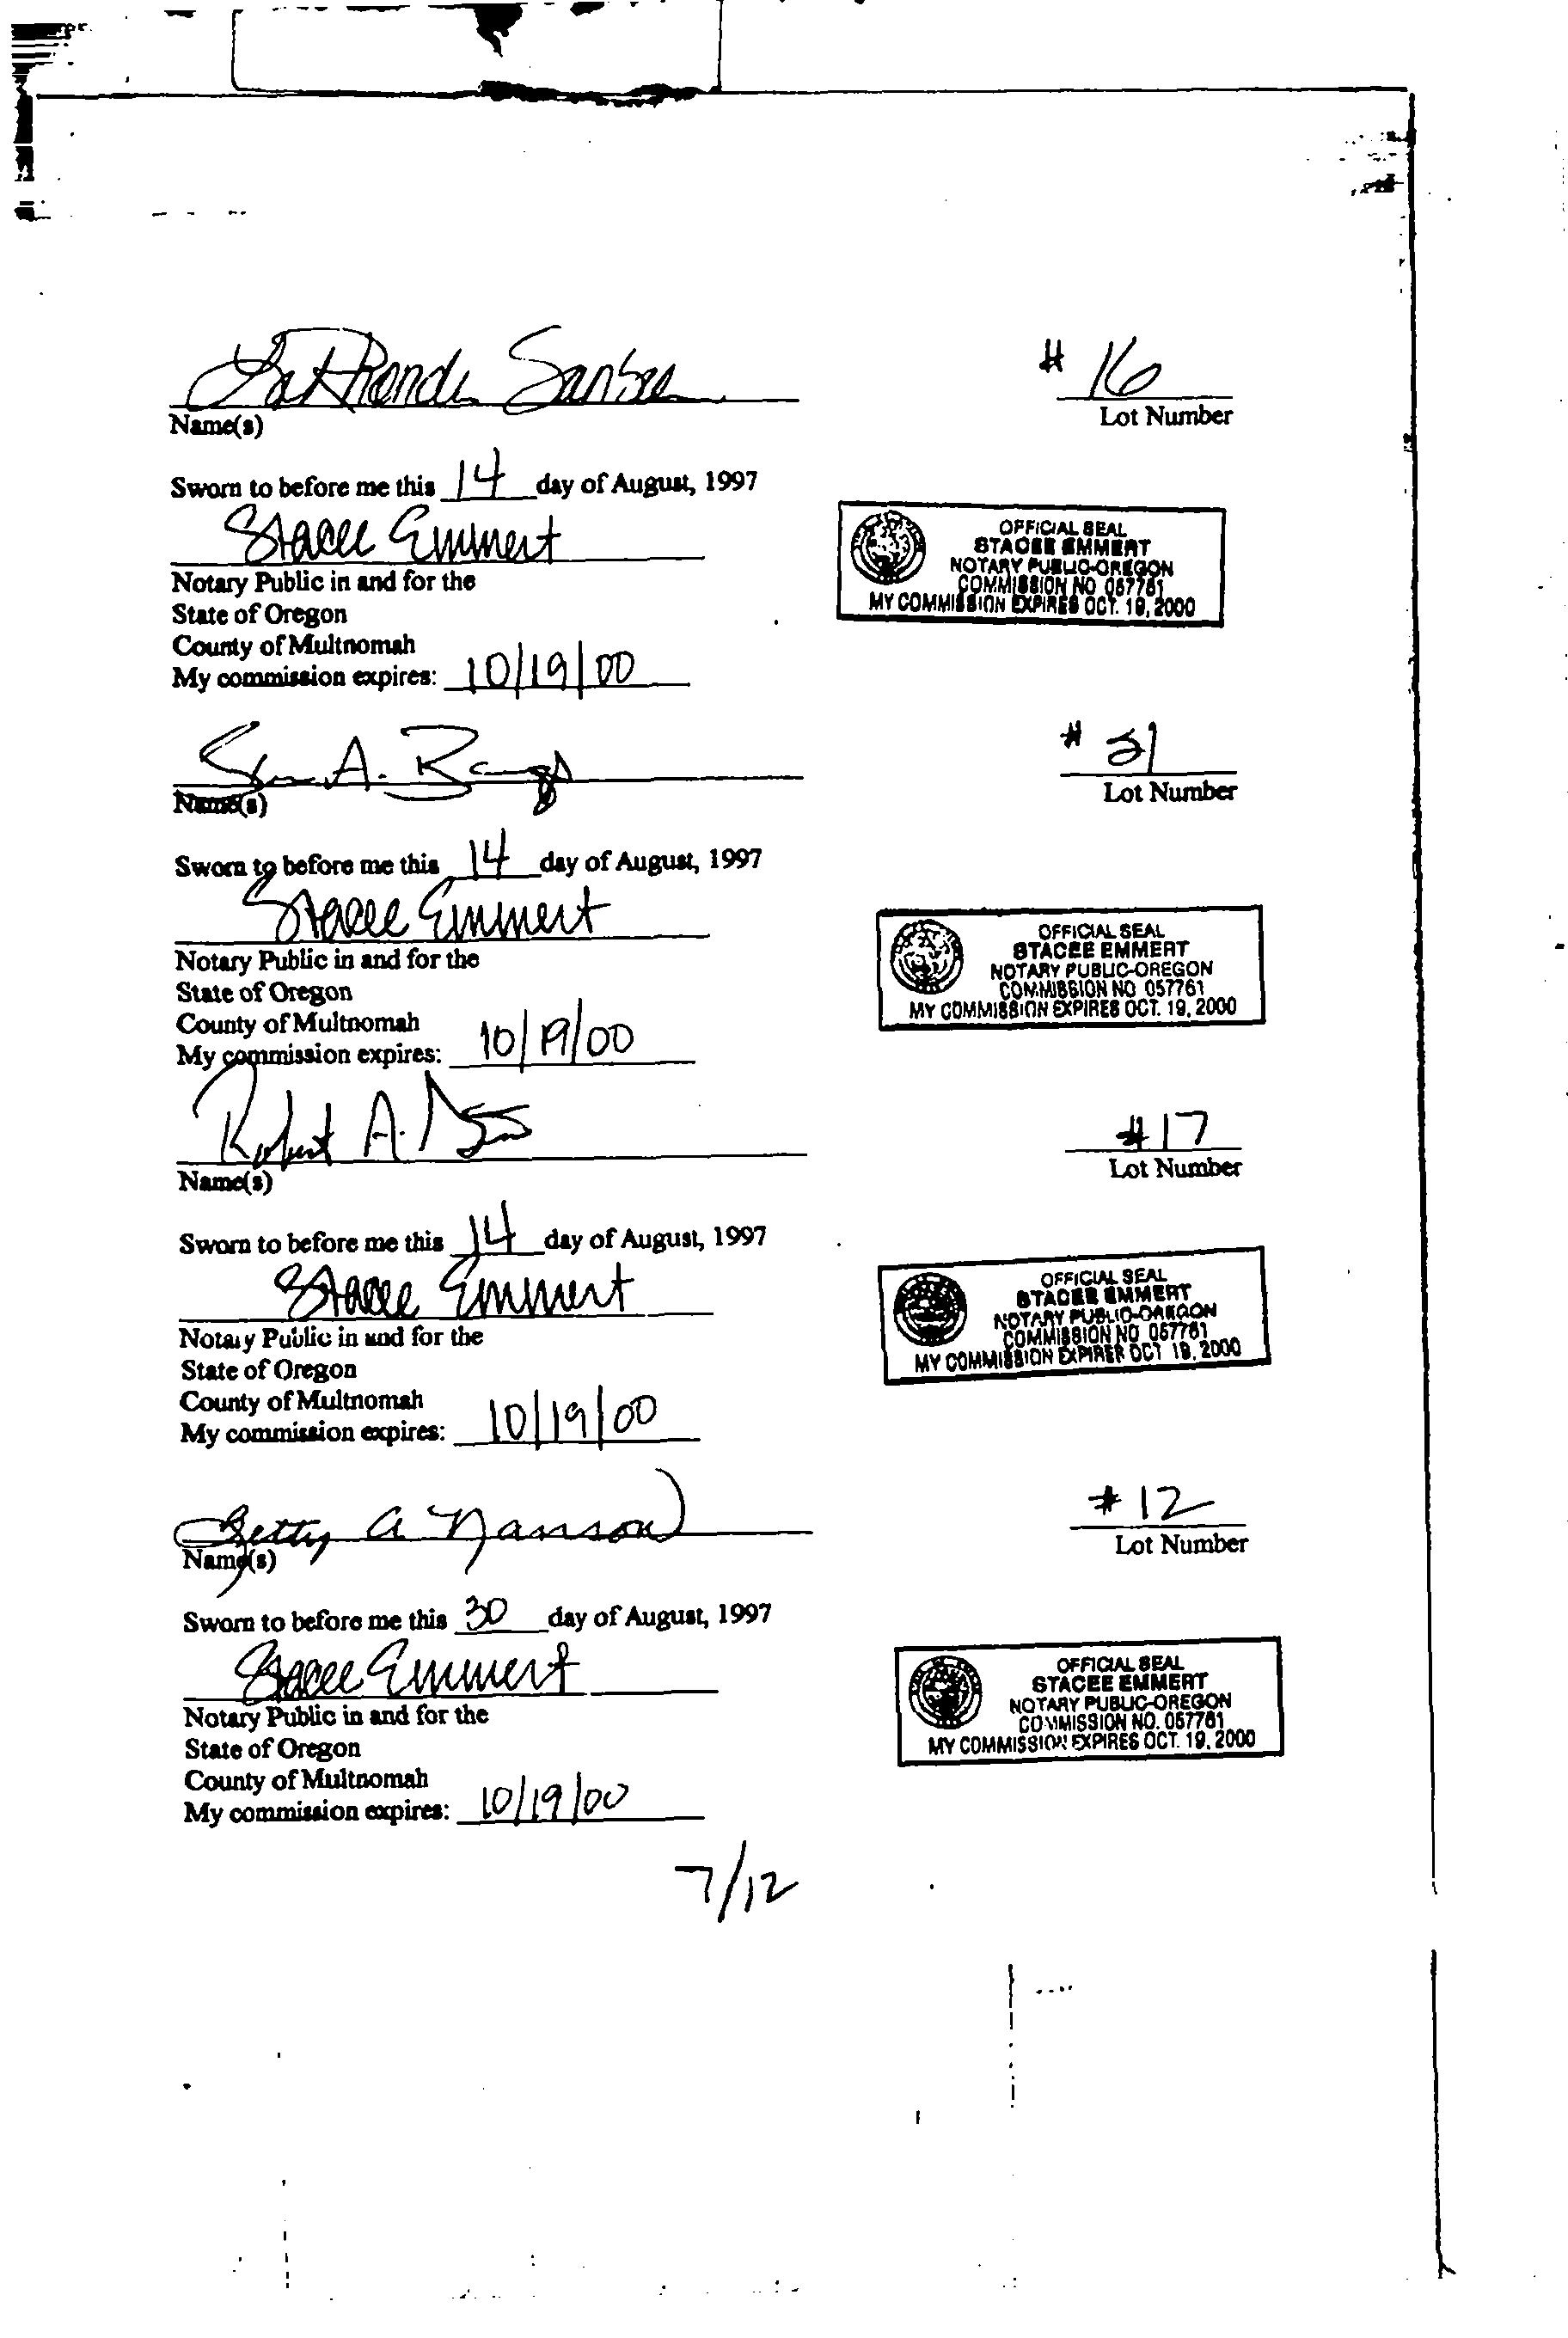 # 16
Name(s) Lot Number
Sworn to before me this 14 day of August, 1997
Stacee Emmert
Notary Public in and for the
State of Oregon
County of Multnomah
My commission expires: 10/19/00
OFFICIAL SEAL
STACEE EMMERT
NOTARY PUBLIC-OREGON
COMMISSION NO 057761
MY COMMISSION EXPIRES OCT. 19, 2000
A.
# 21
Name(s) Lot Number
Sworn to before me this 14 day of August, 1997
Stacee Emmert
Notary Public in and for the
State of Oregon
County of Multnomah
My commission expires: 10/19/00
OFFICIAL SEAL
STACEE EMMERT
NOTARY PUBLIC-OREGON
COMMISSION NO 057761
MY COMMISSION EXPIRES OCT. 19, 2000
Robert A.
#17
Name(s) Lot Number
Sworn to before me this 14 day of August, 1997
Stacee Emmert
Notary Public in and for the
State of Oregon
County of Multnomah
My commission expires: 10/19/00
OFFICIAL SEAL
STACEE EMMERT
NOTARY PUBLIC-OREGON
COMMISSION NO 057761
MY COMMISSION EXPIRES OCT 19, 2000
Betty A Nanson
# 12
Name(s) Lot Number
Sworn to before me this 30 day of August, 1997
Stacee Emmert
Notary Public in and for the
State of Oregon
County of Multnomah
My commission expires: 10/19/00
OFFICIAL SEAL
STACEE EMMERT
NOTARY PUBLIC-OREGON
COMMISSION NO. 057761
MY COMMISSION EXPIRES OCT. 19, 2000
7/12